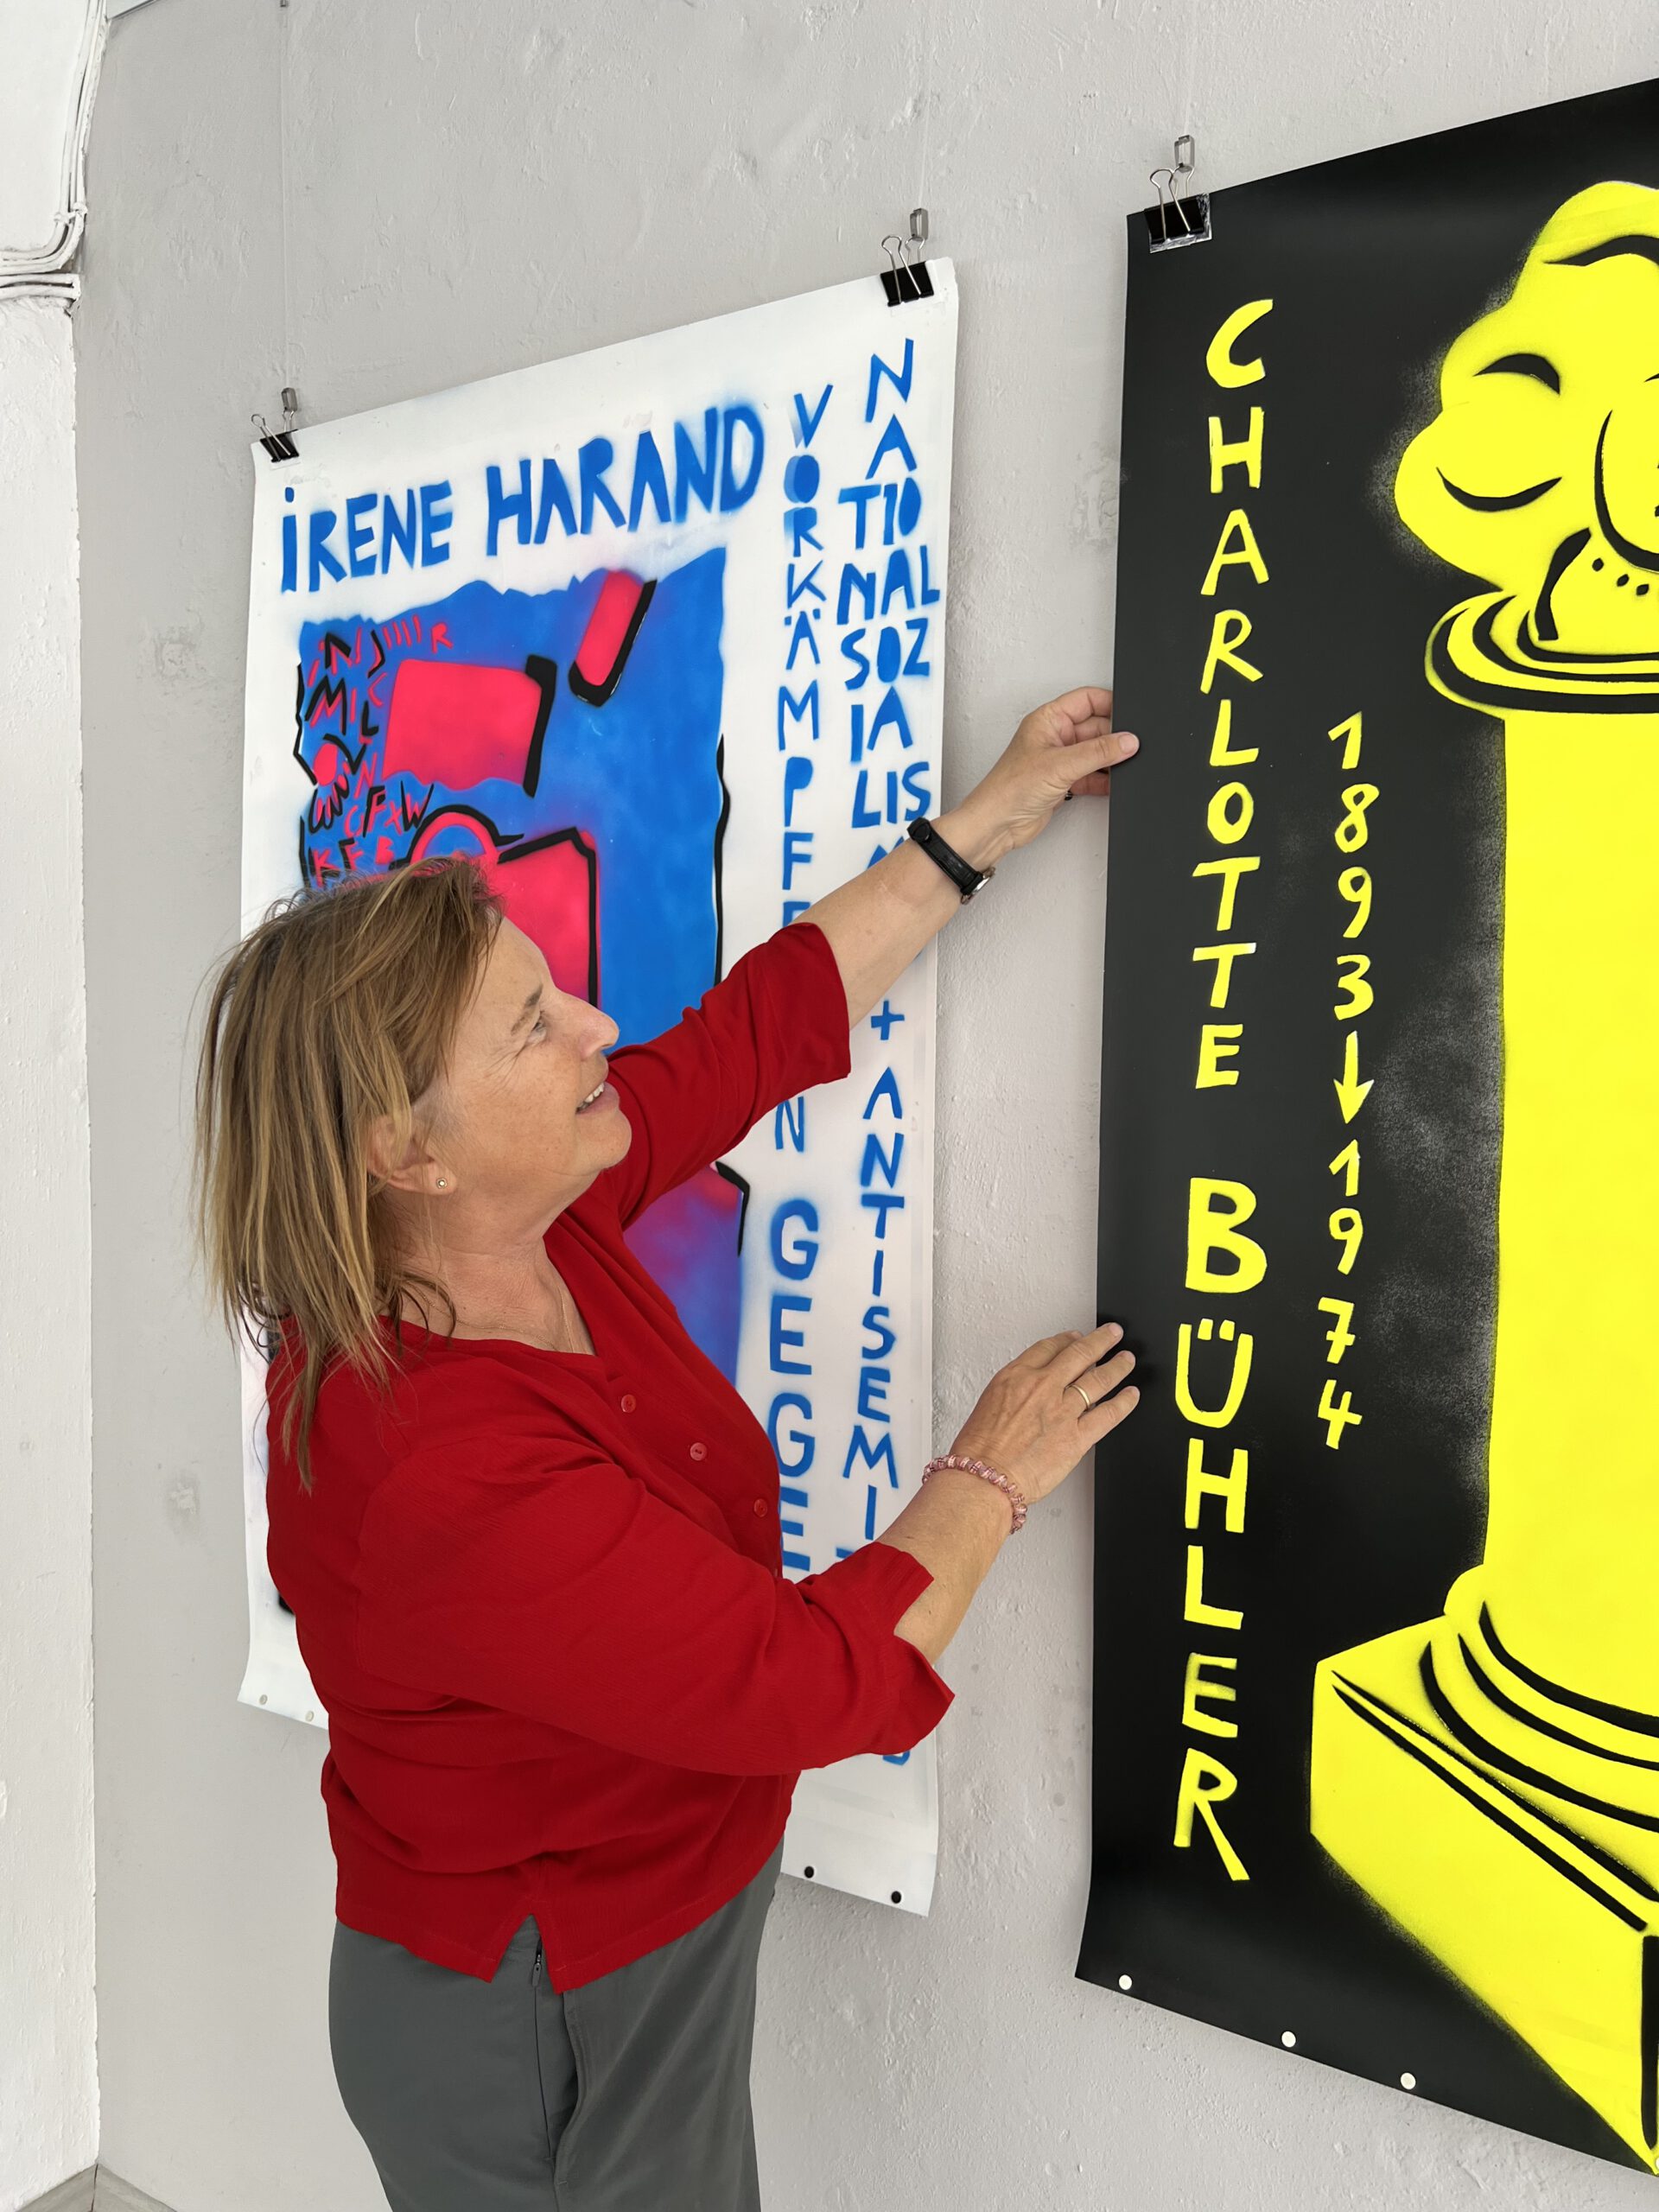 IRENE HARAND
VORKÄMPFE
N GEGE
NATIONALSOZIALIS
+ ANTISEMI
CHARLOTTE BÜHLER
1893→1974